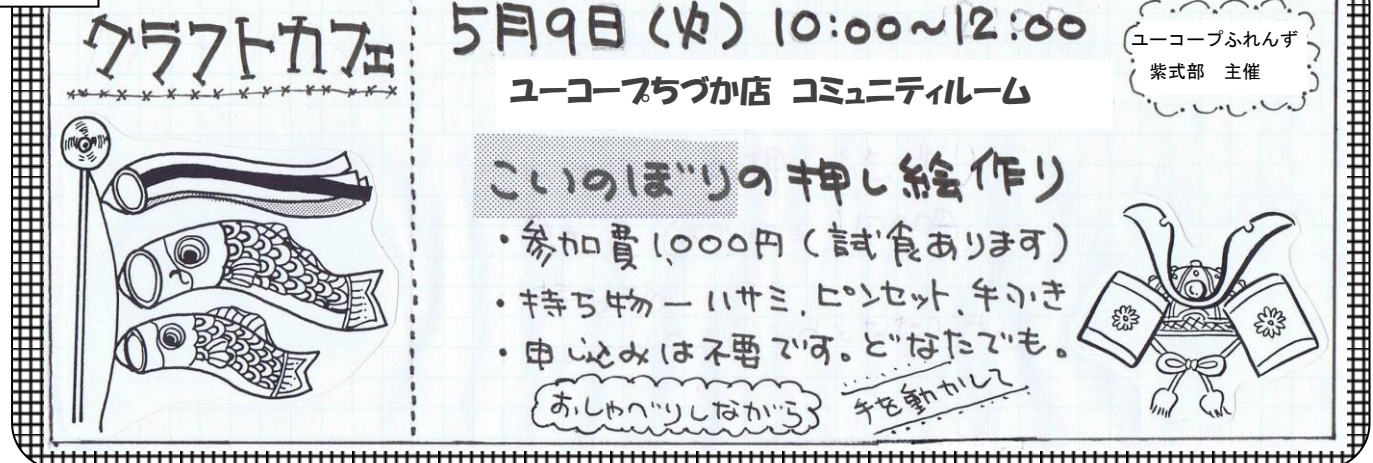 クラフトカフェ
5月9日(火) 10:00~12:00
ユーコープちづか店 コミュニティルーム
ユーコープふれんず
紫式部 主催
こいのぼりの押し絵作り
・参加費1,000円(試食あります)
・持ち物ーハサミ、ピンセット、手ふき
・申し込みは不要です。どなたでも。
おしゃべりしながら
手を動かして